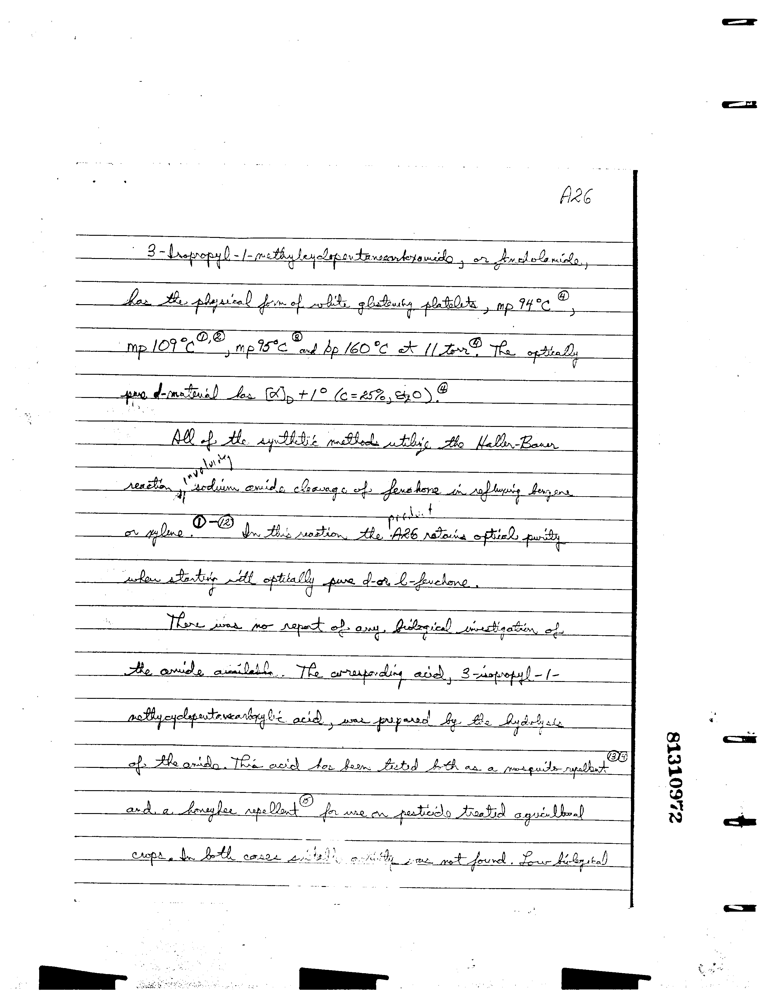 A26
3-Isopropyl-1-methylcyclopentanecarboxamide, or
has the physical form of white glistening platelets, mp 94°C ④,
mp 109°C ①,②, mp 95°C ③ and bp 160°C at 11 torr ④. The optically
pure d-material has [α]D +1° (C=25%, Et2O). ④
All of the synthetic methods utilize the Haller-Bauer
reaction, involving sodium amide cleavage of fenchone in refluxing benzene
or xylene. ①-⑫ In this reaction the product A26 retains optical purity
when starting with optically pure d- or l-fenchone.
There was no report of any biological investigation of
the amide available. The corresponding acid, 3-isopropyl-1-
methycyclopentanecarboxylic acid, was prepared by the hydolysis
of the amide. This acid has been tested both as a mosquito repellent
and a honeybee repellent ⑤ for use on pesticide treated agricultural
crops. In both cases was not found. Low biological
81310972